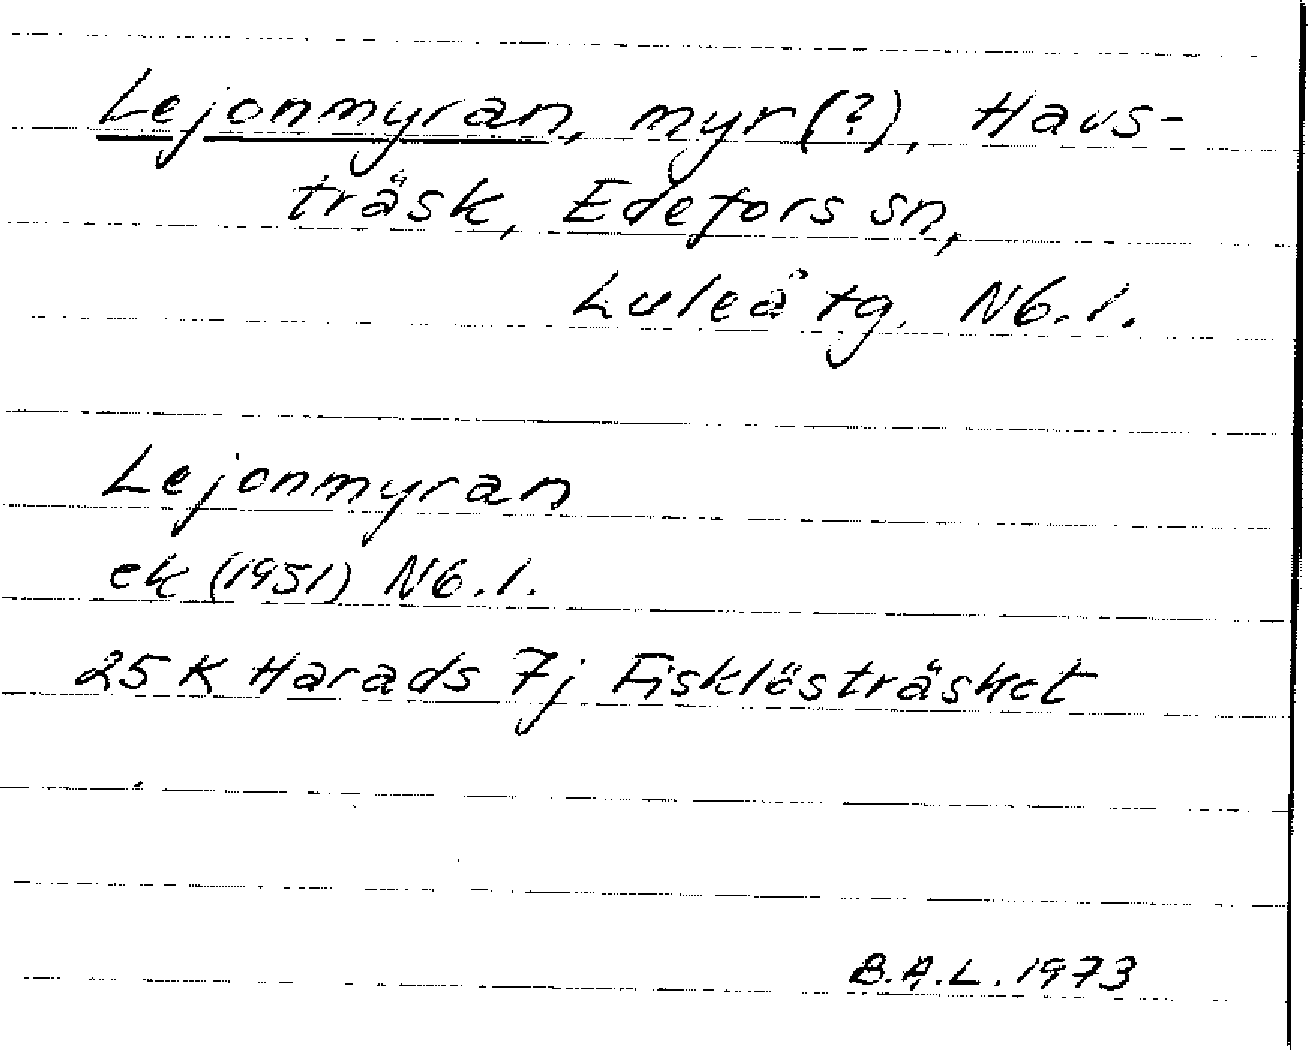 Lejonmyran, myr (?), Havs-
träsk, Edefors sn,
Luleå tg, Nb.l.
Lejonmyran
ek (1951) Nb.l.
25 K Harads 7j Fisklöströsket
B.A.L. 1973